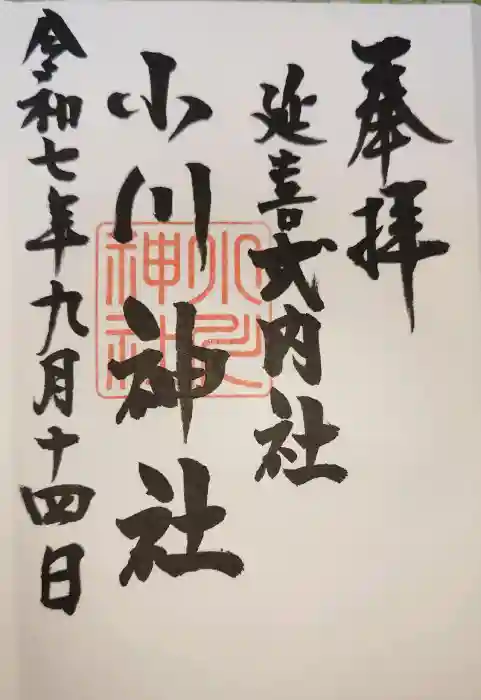 奉拝
延喜式内社
小川神社
小川神社
令和七年九月十四日